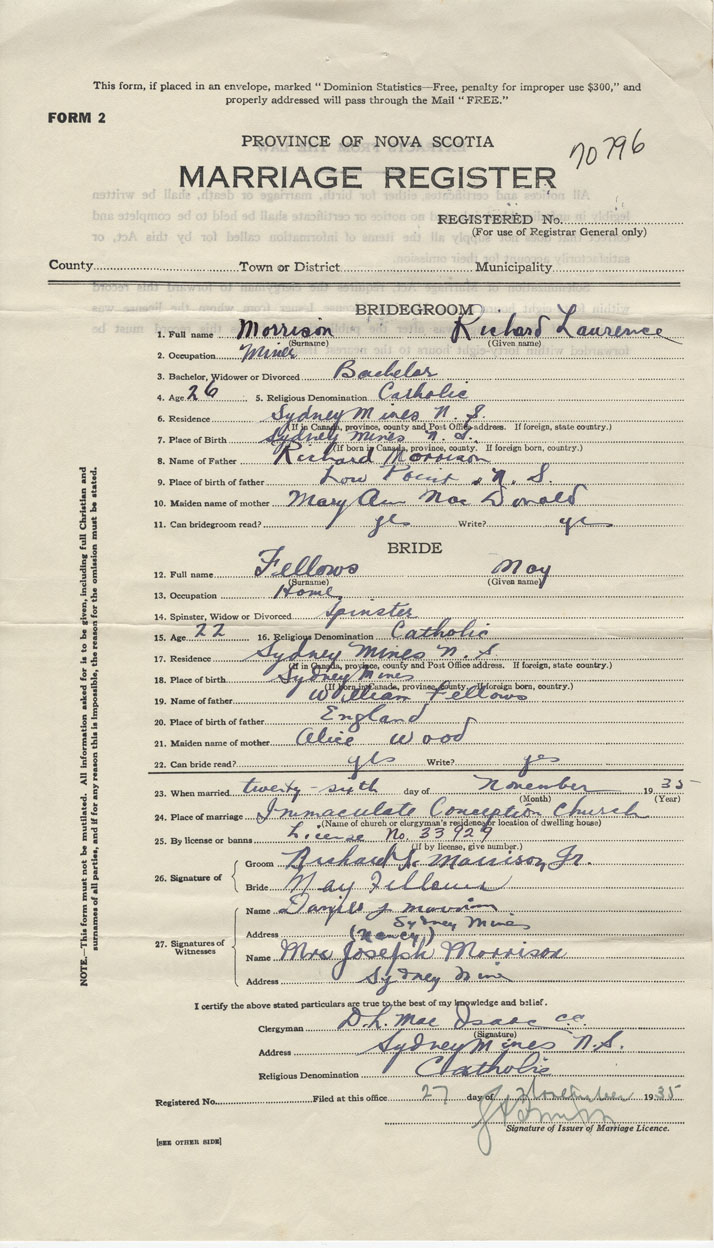 This form, if placed in an envelope, marked “Dominion Statistics—Free, penalty for improper use $300,” and
properly addressed will pass through the Mail “FREE.”
FORM 2
PROVINCE OF NOVA SCOTIA
70796
MARRIAGE REGISTER
REGISTERED No.
(For use of Registrar General only)
County Town or District Municipality
BRIDEGROOM
1. Full name Morrison Richard Laurence
(Surname) (Given name)
2. Occupation Miner
3. Bachelor, Widower or Divorced Bachelor
4. Age 26 5. Religious Denomination Catholic
6. Residence Sydney Mines N. S.
(If in Canada, province, county and Post Office address. If foreign, state country.)
7. Place of Birth Sydney Mines N. S.
(If born in Canada, province, county. If foreign born, country.)
8. Name of Father Richard Morrison
9. Place of birth of father Low Point, N. S.
10. Maiden name of mother Mary Ann Mac Donald
11. Can bridegroom read? yes Write? yes
BRIDE
12. Full name Fellows May
(Surname) (Given name)
13. Occupation Home
14. Spinster, Widow or Divorced Spinster
15. Age 22 16. Religious Denomination Catholic
17. Residence Sydney Mines N. S
(If in Canada, province, county and Post Office address. If foreign, state country.)
18. Place of birth Sydney Mines
(If born in Canada, province, county. If foreign born, country.)
19. Name of father William Fellows
20. Place of birth of father England
21. Maiden name of mother Alice Wood
22. Can bride read? yes Write? yes
23. When married twenty-sixth day of November 1935
(Month) (Year)
24. Place of marriage Immaculate Conception Church
(Name of church or clergyman's residence, or location of dwelling house)
25. By license or banns License No. 33929
(If by license, give number.)
26. Signature of
Groom Richard L. Morrison, Jr.
Bride May Fellows
27. Signatures of
Witnesses
Name J
Address Sydney Mines
(Nancy)
Name Mrs Joseph Morrison
Address Sydney Mines
I certify the above stated particulars are true to the best of my knowledge and belief.
Clergyman D. L. Mac Isaac c.c.
(Signature)
Address Sydney Mines N. S.
Religious Denomination Catholic
Registered No. Filed at this office 27 day of November 1935
Signature of Issuer of Marriage Licence.
[SEE OTHER SIDE]
NOTE.—This form must not be mutilated. All information asked for is to be given, including full Christian and
surnames of all parties, and if for any reason this is impossible, the reason for the omission must be stated.